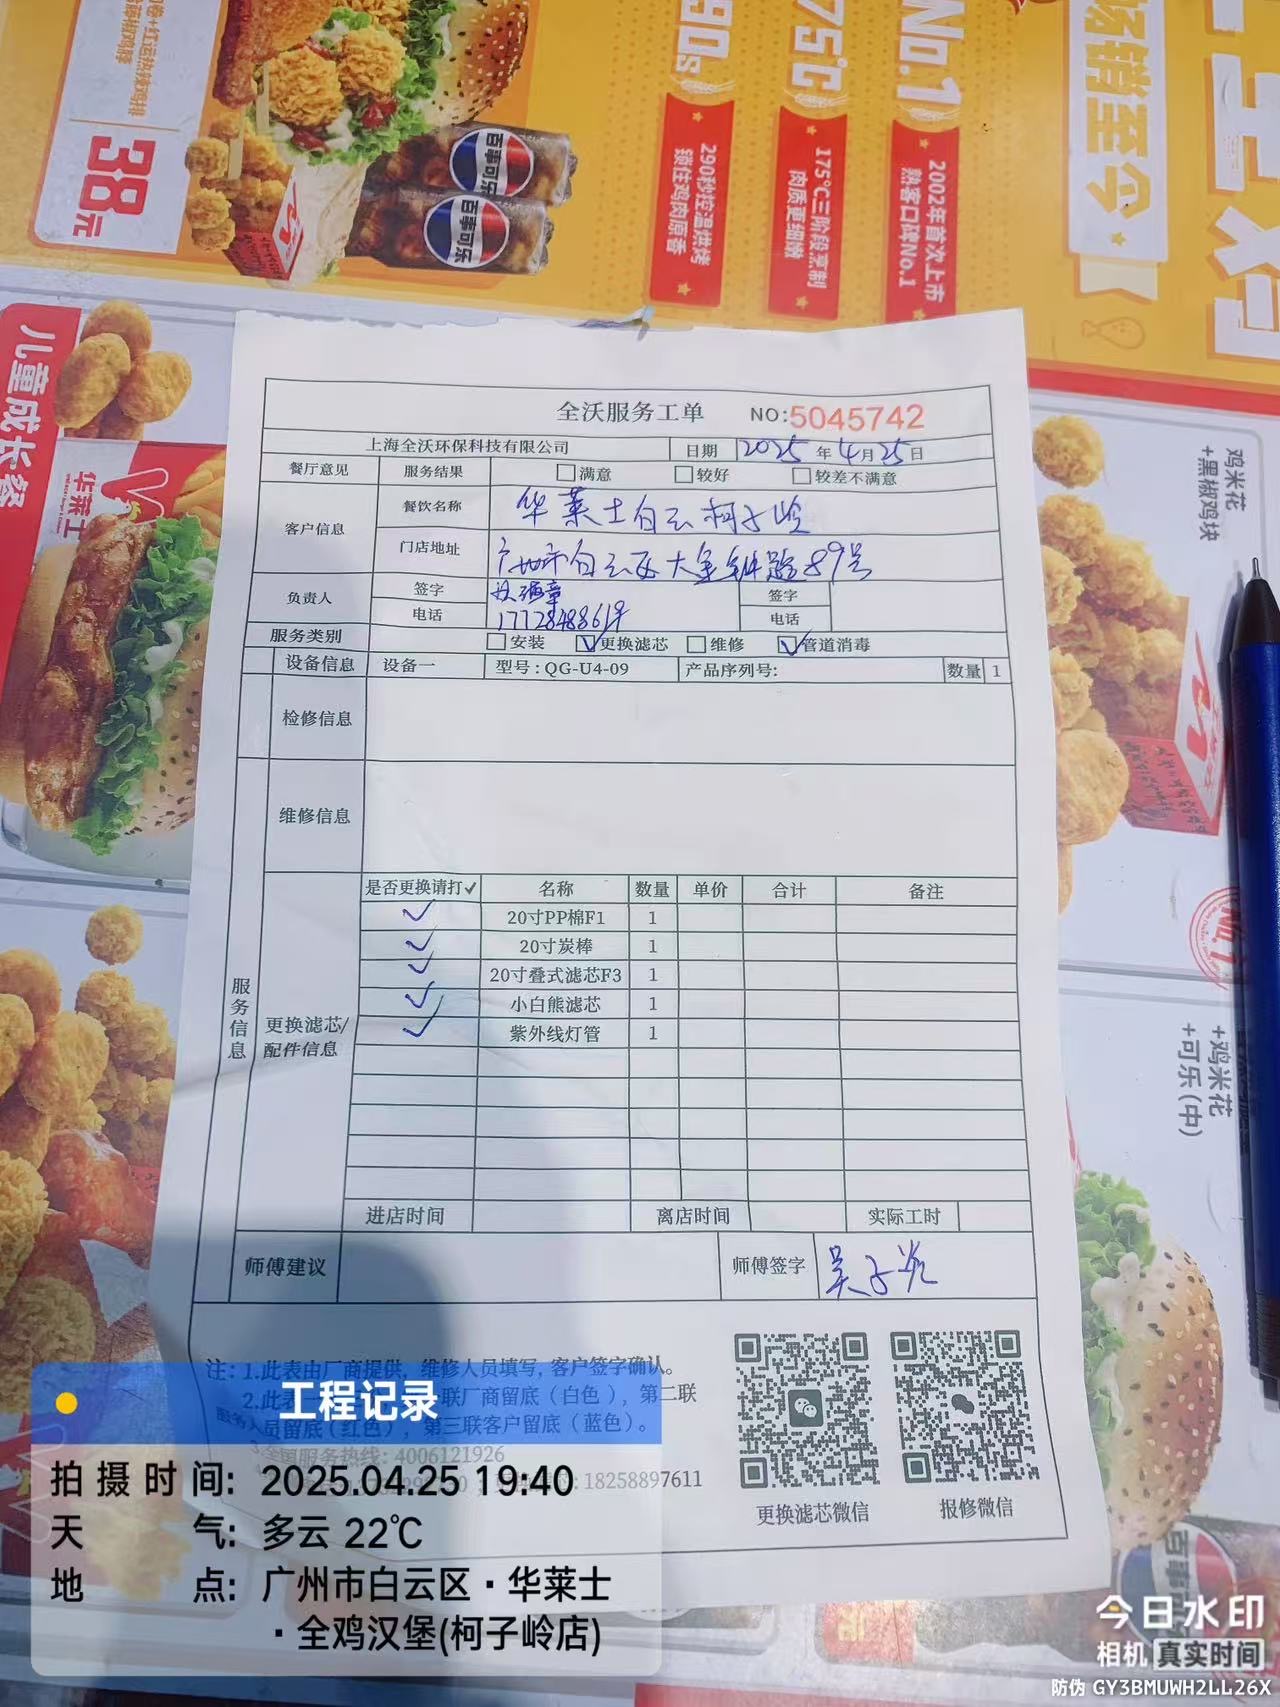 卷+红运热辣鸡排
辣椒鸡腿
38元
百事可乐
百事可乐
90s
290秒控温烘烤
锁住鸡肉原香
75℃
175℃三阶段烹制
肉质更细嫩
No.1
2002年首次上市
熟客口碑No.1
畅销至今
儿童成长餐
华莱士
鸡米花
+黑椒鸡块
+鸡米花
+可乐(中)
全沃服务工单 NO:5045742
上海全沃环保科技有限公司 日期 2025年4月25日
餐厅意见 服务结果 满意 较好 较差不满意
客户信息 餐饮名称 华莱士白云柯子岭
门店地址 广州市白云区大金钟路89号
负责人 签字 签字
电话 电话
服务类别 安装 ✓更换滤芯 维修 ✓管道消毒
设备信息 设备一 型号:QG-U4-09 产品序列号: 数量 1
检修信息
维修信息
服务信息
更换滤芯/
配件信息
是否更换请打✓ 名称 数量 单价 合计 备注
✓ 20寸PP棉F1 1
✓ 20寸炭棒 1
✓ 20寸叠式滤芯F3 1
✓ 小白熊滤芯 1
✓ 紫外线灯管 1
进店时间 离店时间 实际工时
师傅建议 师傅签字
注: 1.此表由厂商提供, 维修人员填写, 客户签字确认。
2.此表 联厂商留底(白色), 第二联
服务人员留底(红色), 第三联客户留底(蓝色)。
3.全国服务热线: 4006121926
18258897611
更换滤芯微信 报修微信
工程记录
拍摄时间: 2025.04.25 19:40
天气: 多云 22℃
地点: 广州市白云区·华莱士
·全鸡汉堡(柯子岭店)
百事可乐
今日水印
相机 真实时间
防伪 GY3BMUWH2LL26X